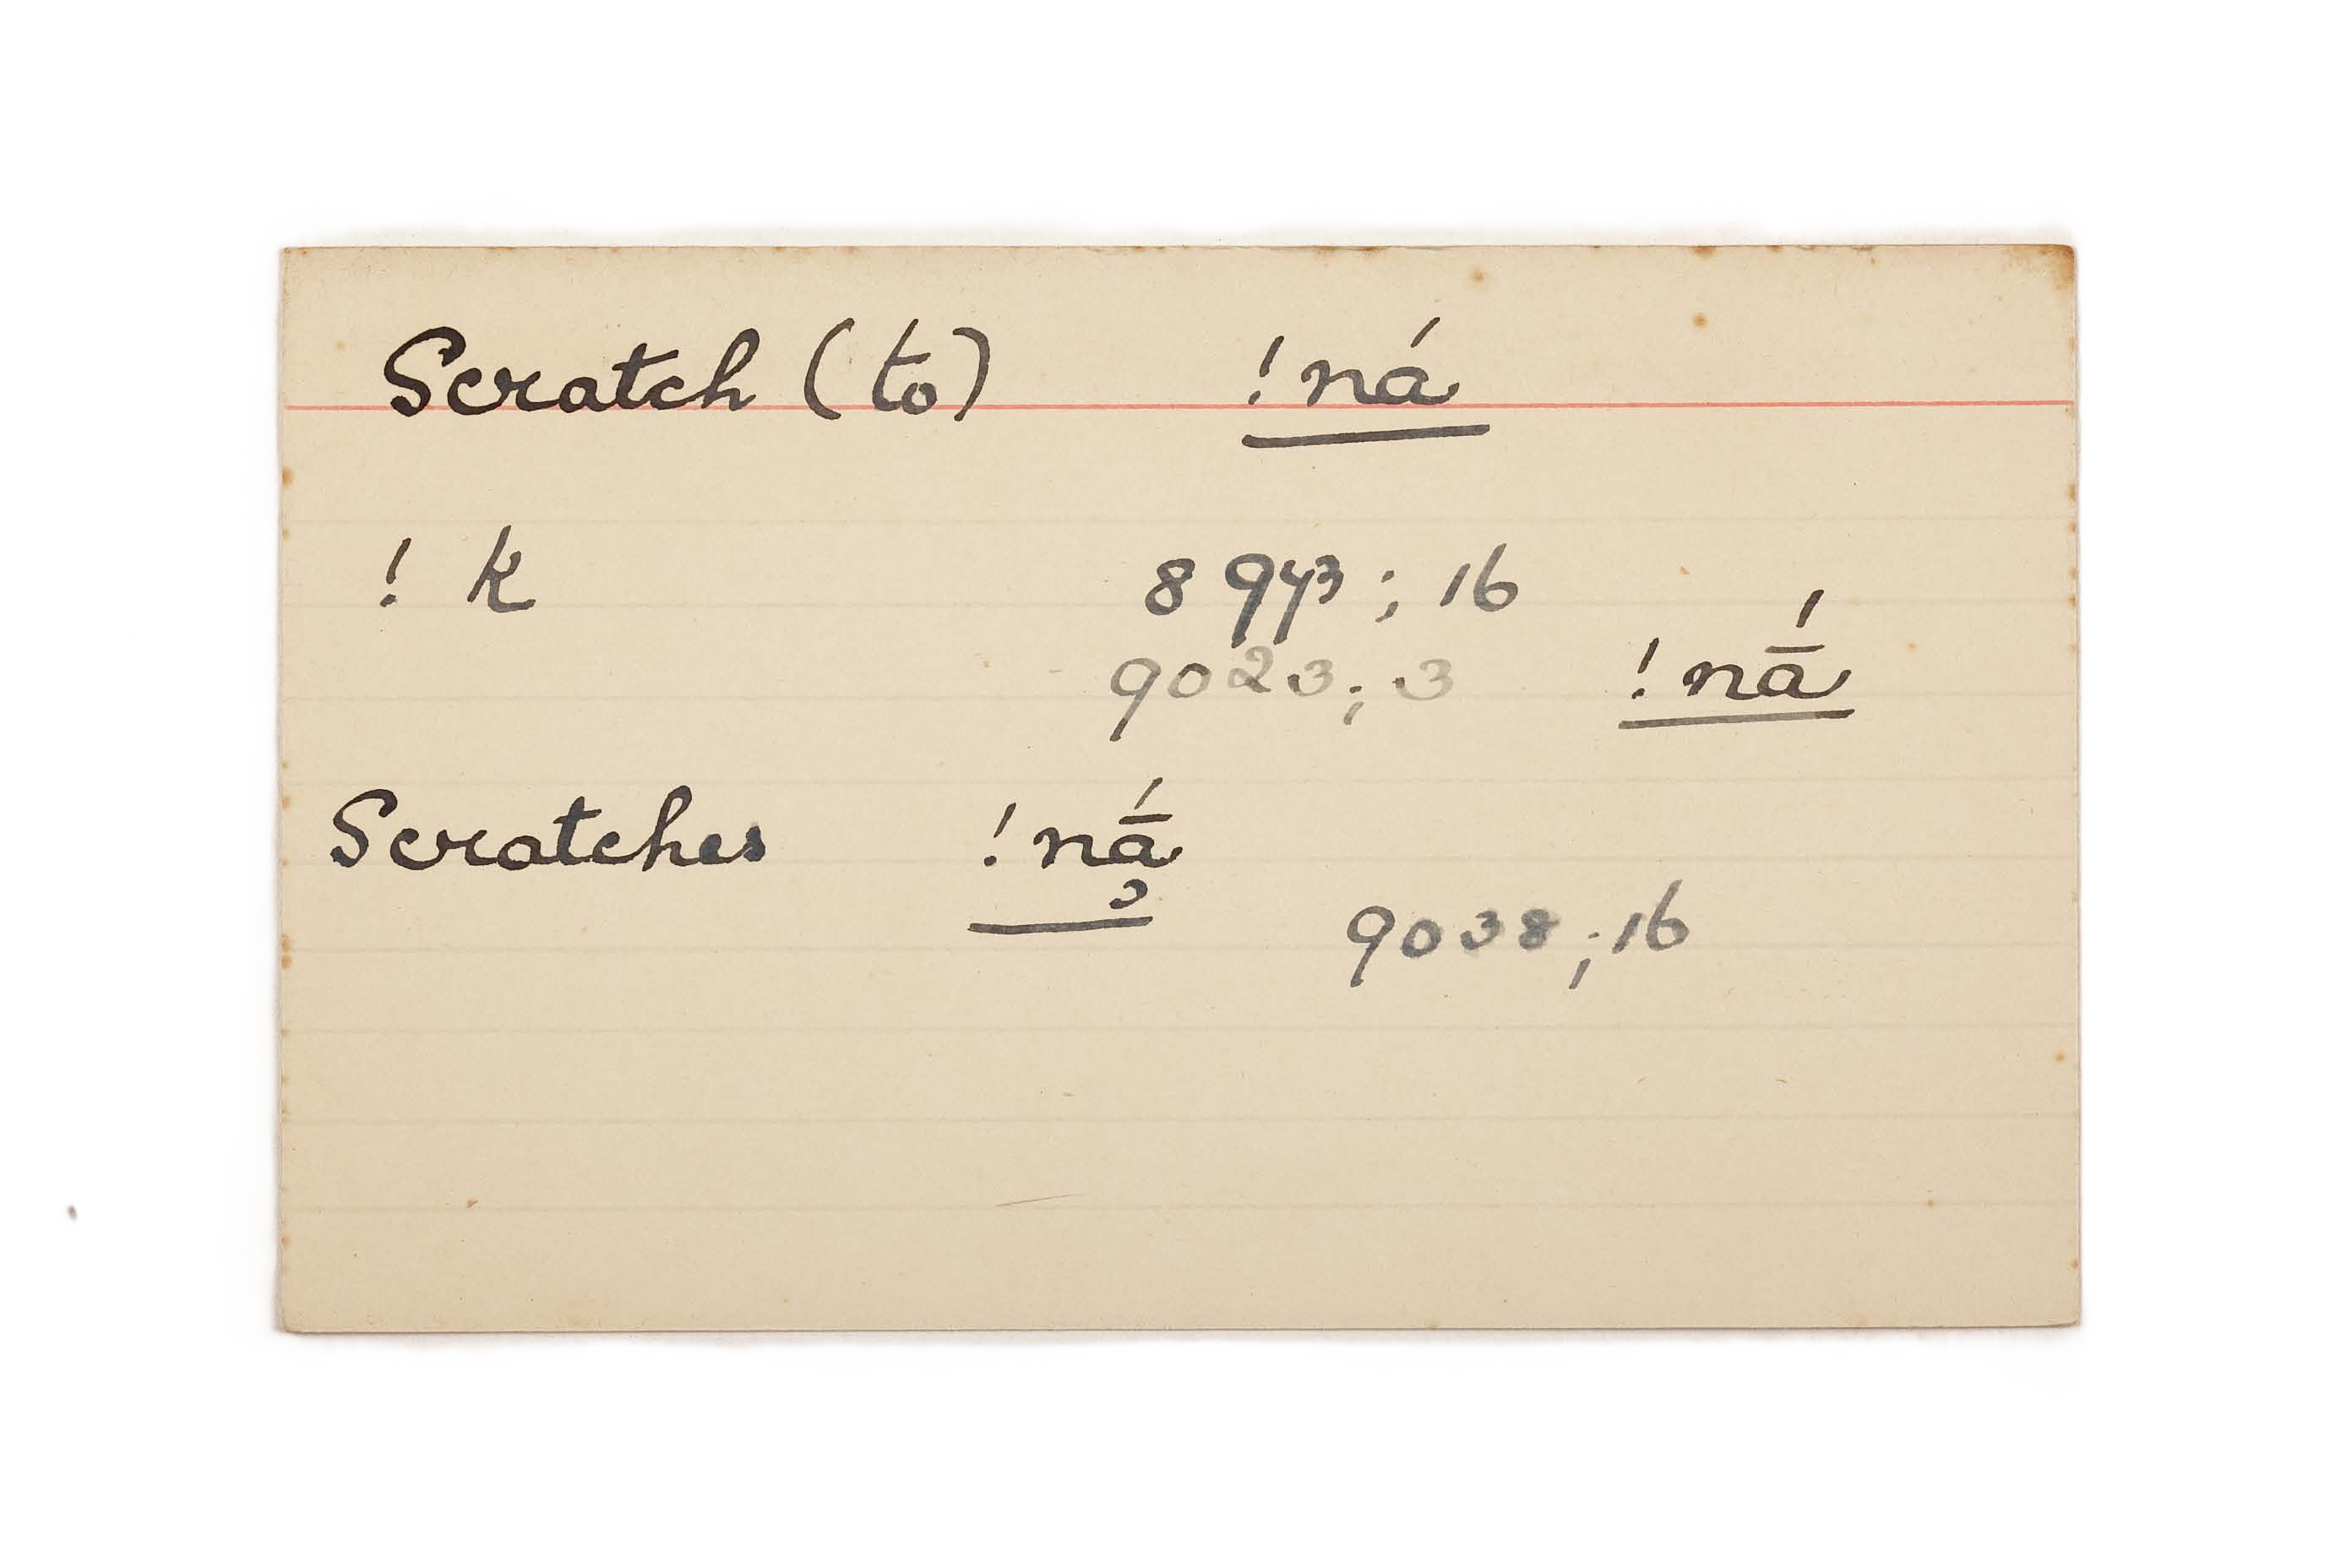 Scratch (to) !ná
! k 8973; 16
9023; 3 !nā́
Scratches !nā̹́
9038; 16